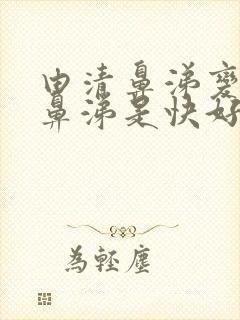 由清鼻涕变
鼻涕是快好
為輕塵